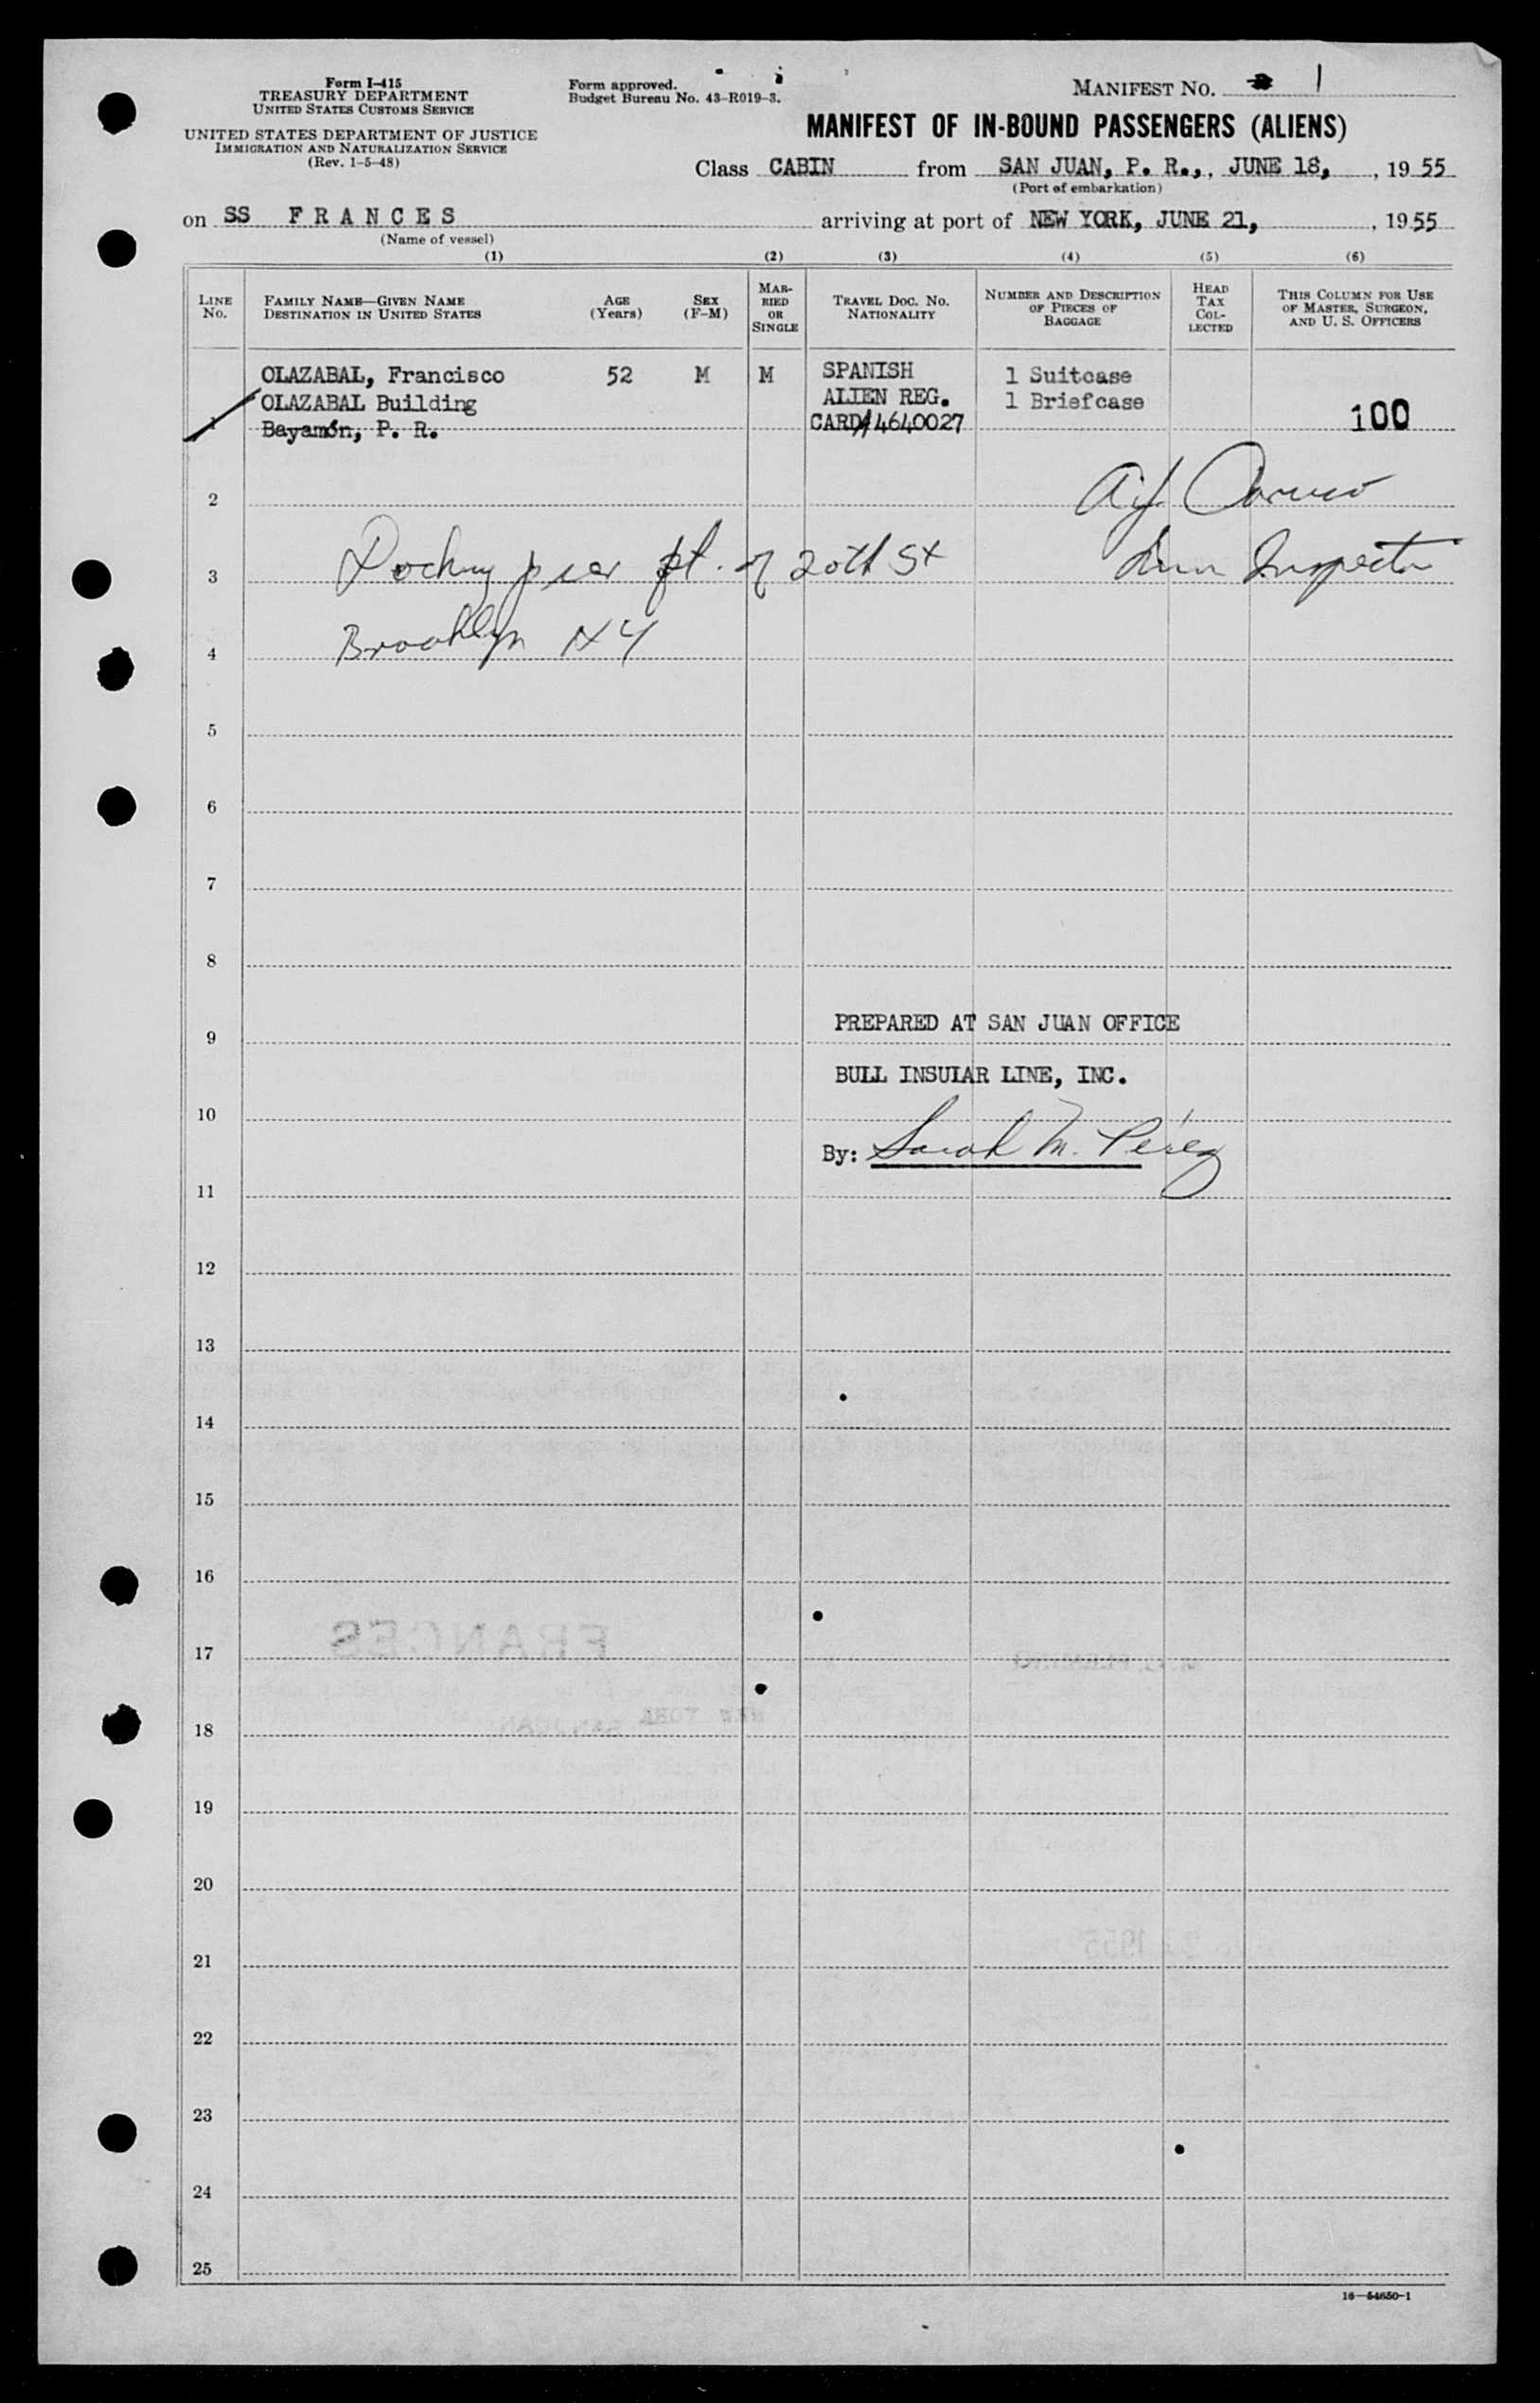 Form I-415
TREASURY DEPARTMENT
UNITED STATES CUSTOMS SERVICE
UNITED STATES DEPARTMENT OF JUSTICE
IMMIGRATION AND NATURALIZATION SERVICE
(Rev. 1-5-48)
Form approved.
Budget Bureau No. 43-R019-3.
MANIFEST NO. 1
MANIFEST OF IN-BOUND PASSENGERS (ALIENS)
Class CABIN from SAN JUAN, P. R.,, JUNE 18, , 19 55
(Port of embarkation)
on SS F R A N C E S arriving at port of NEW YORK, JUNE 21, , 1955
(Name of vessel)
(1) (2) (3) (4) (5) (6)
LINE No.
FAMILY NAME—GIVEN NAME
DESTINATION IN UNITED STATES
AGE (Years)
SEX (F-M)
MAR-
RIED
OR
SINGLE
TRAVEL DOC. NO.
NATIONALITY
NUMBER AND DESCRIPTION
OF PIECES OF
BAGGAGE
HEAD
TAX
COL-
LECTED
THIS COLUMN FOR USE
OF MASTER, SURGEON,
AND U. S. OFFICERS
OLAZABAL, Francisco 52 M M SPANISH 1 Suitcase
OLAZABAL Building ALIEN REG. 1 Briefcase
1 Bayamón, P. R. CARD A4640027 100
2
3 Docking pier ft. of 20th St Imm Inspector
4 Brooklyn NY
5
6
7
8
PREPARED AT SAN JUAN OFFICE
9
BULL INSULAR LINE, INC.
10
By: Sarah M. Pérez
11
12
13
14
15
16
17 FRANCES
NEW YORK SAN JUAN
18
19
20
1955
21
22
23
24
25
16—54650-1